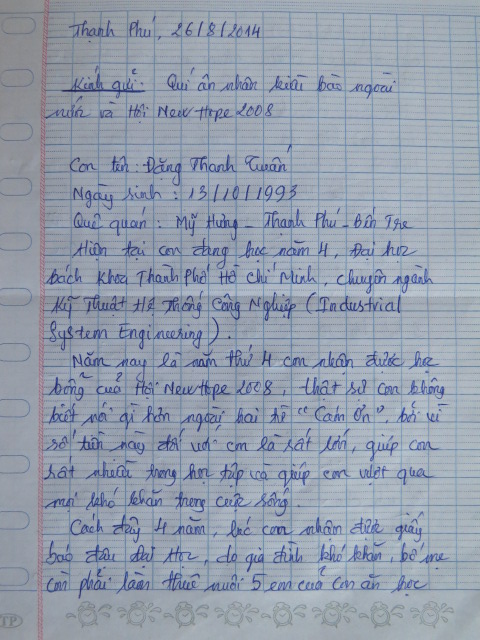 Thạnh Phú, 26/8/2014
Kính gửi: Quí ân nhân kiều bào ngoài
nước và Hội New Hope 2008
Con tên: Đặng Thanh Tuấn
Ngày sinh: 13/10/1993
Quê quán: Mỹ Hưng - Thạnh Phú - Bến Tre
Hiện tại con đang học năm 4, Đại học
bách Khoa Thành Phố Hồ Chí Minh, chuyên ngành
Kỹ Thuật Hệ Thống Công Nghiệp (Industrial
System Engineering).
Năm nay là năm thứ 4 con nhận được học
bổng của Hội New Hope 2008, thật sự con không
biết nói gì hơn ngoài hai từ "Cám Ơn", bởi vì
số tiền này đối với em là rất lớn, giúp con
rất nhiều trong học tập và giúp con vượt qua
mọi khó khăn trong cuộc sống.
Cách đây 4 năm, lúc con nhận được giấy
báo đậu Đại Học, do gia đình khó khăn, bố mẹ
còn phải làm thuê nuôi 5 em của con ăn học
TP